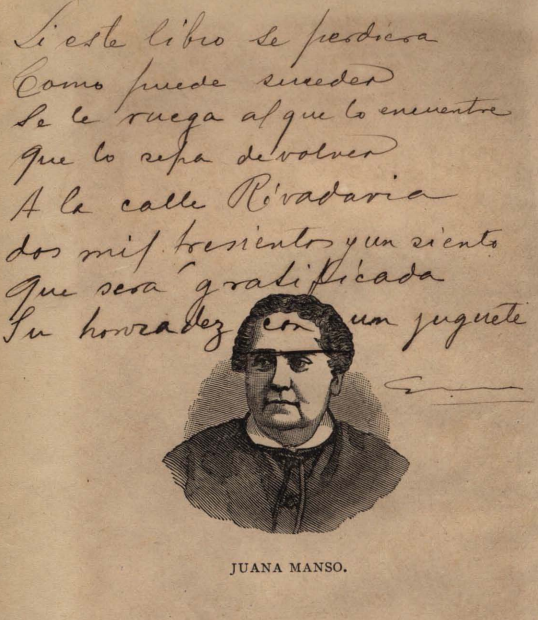 Si este libro se perdiera
Como puede suceder
Se le ruega al que lo encuentre
que lo sepa devolver
A la calle Rivadavia
dos mil tresientos y un siento
que será gratificada
Su honradez con un juguete
JUANA MANSO.